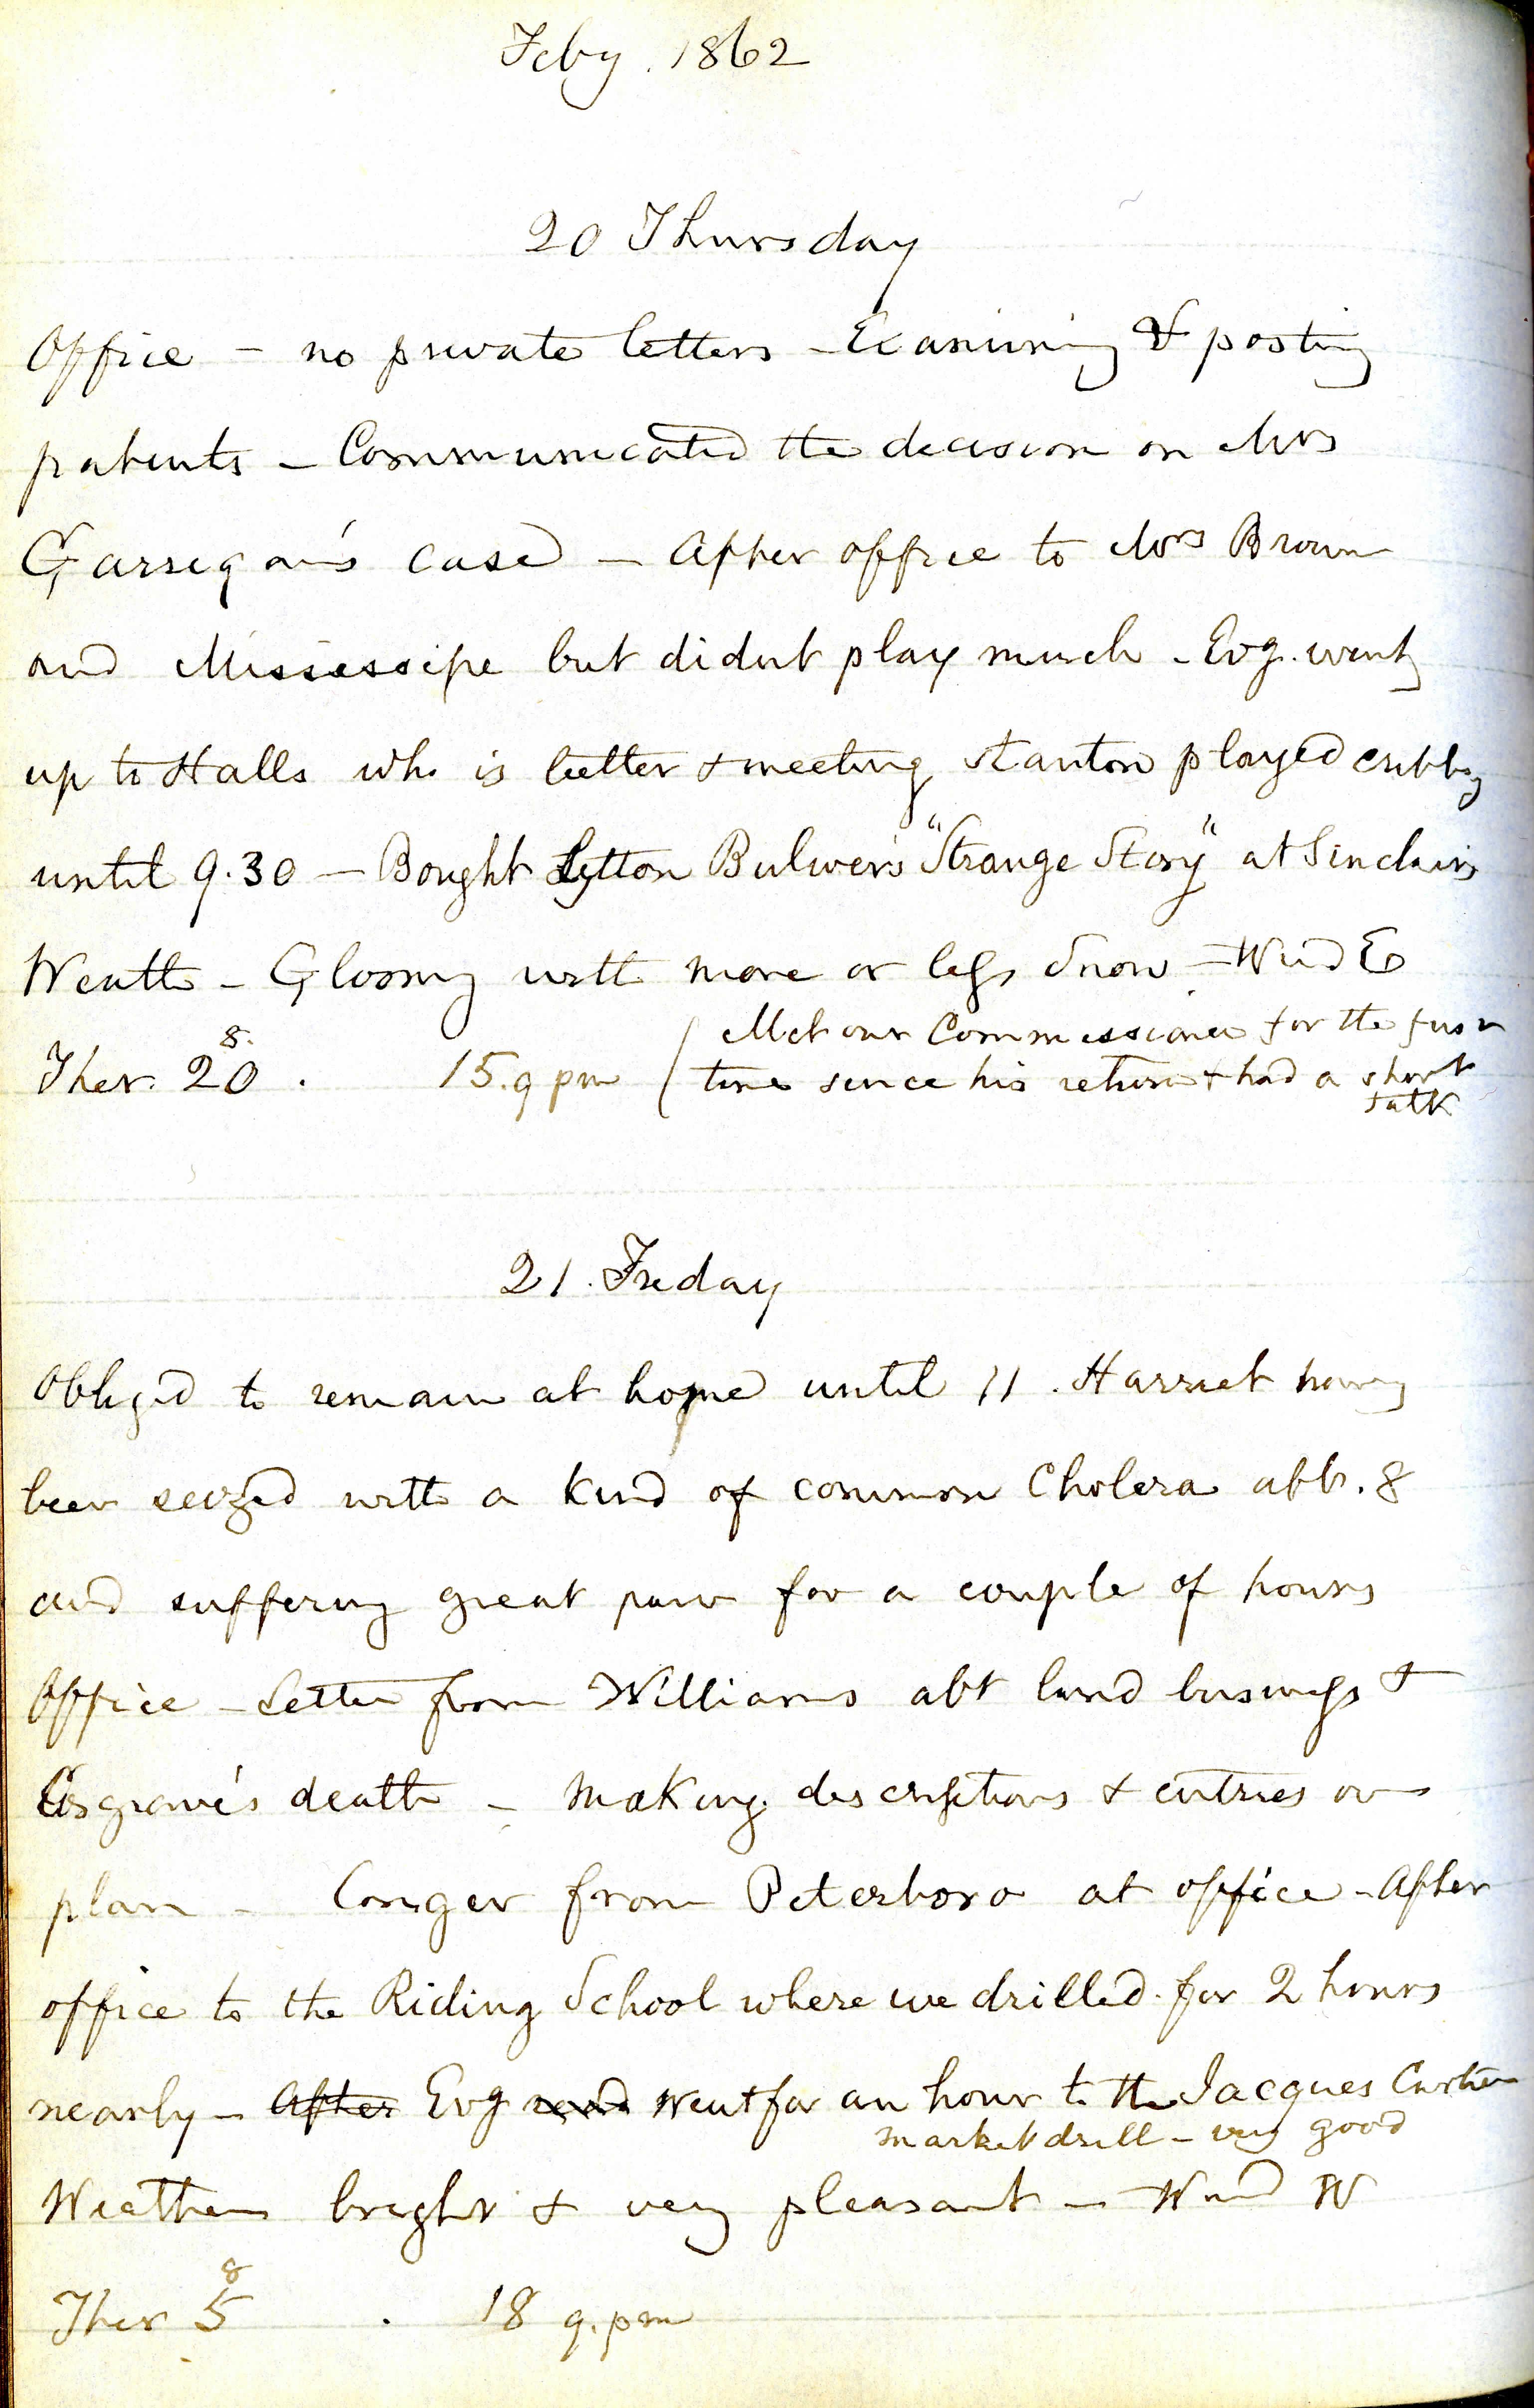 Feby. 1862
20 Thursday
Office - no private letters - Examining & posting
patents - Communicated the decision on Mrs
Garrigan's case - After office to Mrs Brown
and Mississipe but didnt play much - Evg. went
up to Halls who is better & meeting Stanton played cribbg
until 9.30 - Bought Lytton Bulwer's "Strange Story" at Sinclairs
Weath - Gloomy with more or less Snow - Wind E
8.
Ther. 20 . 15. 9 pm ( Met our Commissioner for the first
time since his return & had a short
talk
21. Friday
Obliged to remain at home until 11. Harriet having
been seized with a kind of common Cholera abt. 8
and suffering great pain for a couple of hours
Office - Letter from Williams abt land business &
Cosgrove's death - Making descriptions & entries on
plan - Conger from Peterboro at office - After
office to the Riding School where we drilled for 2 hours
nearly - After Evg read went for an hour to the Jacques Cartier
market drill - very good
Weather bright & very pleasant - Wind W
8
Ther 5 . 18 9. pm